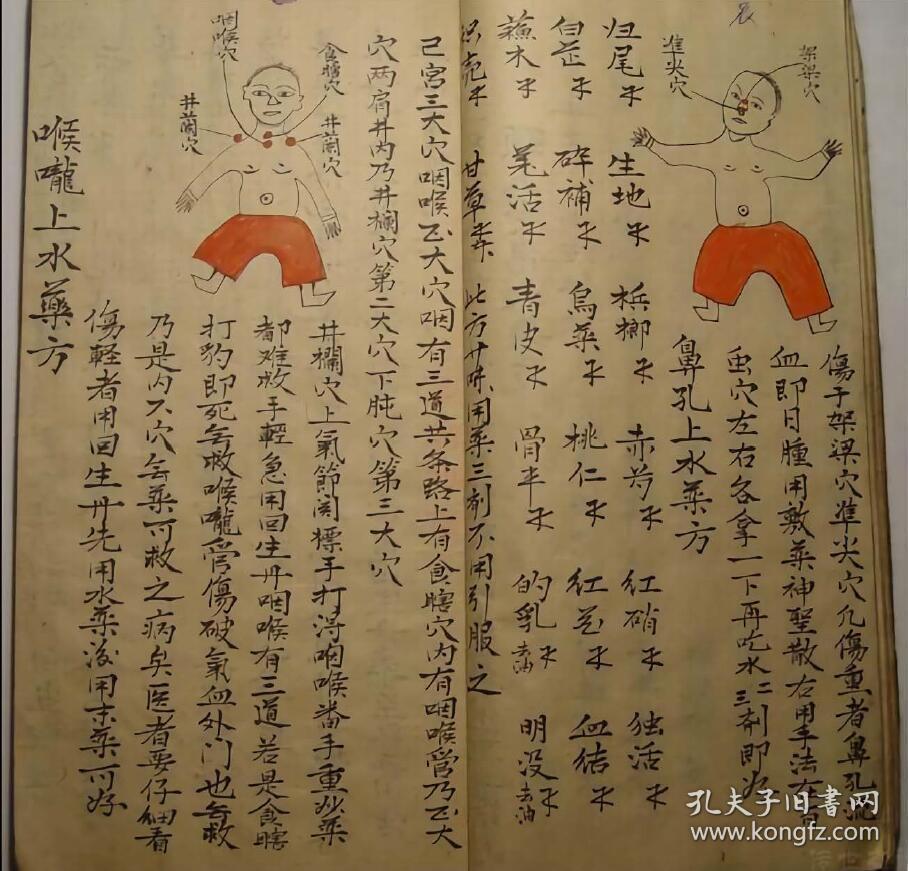 架梁穴
準尖穴
傷于架梁穴準尖穴凡傷重者鼻孔流
血即日腫用敷薬神聖散右用手法在
虫穴左右各拿一下再吃水二三剤即好
鼻孔上水薬方
归尾 生地 梹榔 赤芍 红硝 独活
白芷 碎補 烏薬 桃仁 红花 血结
蘓木 羌活 青皮 骨半 的乳去油 明没去油
只壳 甘草 此方廿味用薬三剤不用引服之
己宫三大穴咽喉正大穴咽有三道共条路上有食瞎穴内有咽喉管乃正大
穴两肩井内乃井欄穴第二大穴下肫穴第三大穴
咽喉穴
食瞎穴
井蘭穴
井蘭穴
井欄穴上氣節関標手打得咽喉番手重妙薬
都难救手輕急用回生丹咽喉有三道若是食瞎
打豹即死無救喉嚨管傷破氣血外门也無救
乃是内不穴無薬可救之病矣医者要仔細看
傷輕者用回生丹先用水薬後用末薬可好
喉嚨上水藥方
孔夫子旧书网
www.kongfz.com